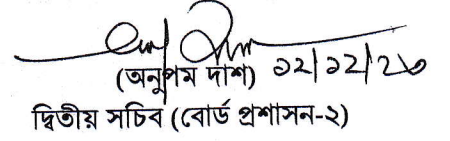 (অনুপম দাশ) ১২/১২/২৩
দ্বিতীয় সচিব (বোর্ড প্রশাসন-২)